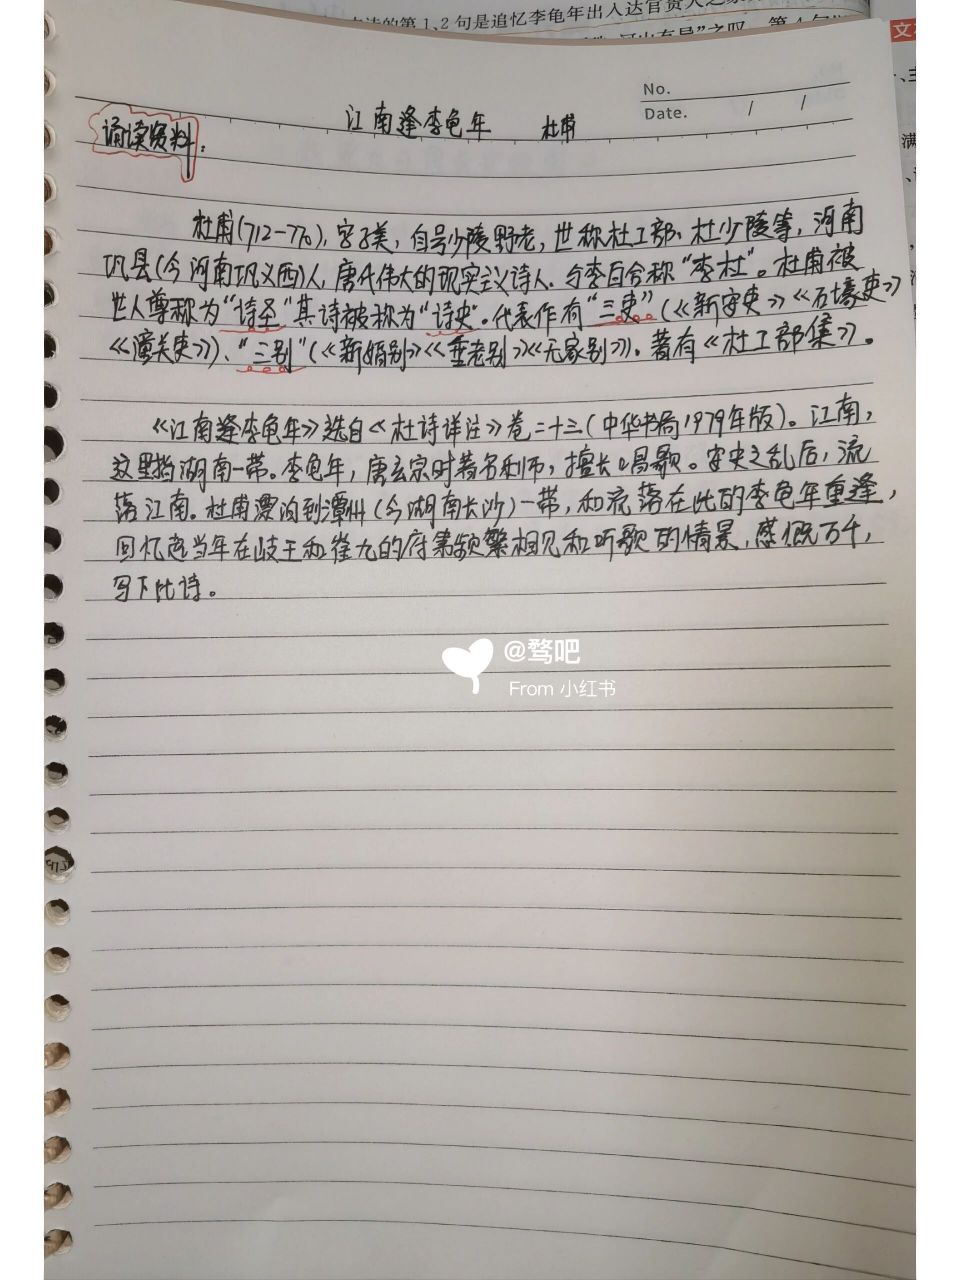 的第1、2句是追忆李龟年出入达官贵人之家
No.
Date. / /
江南逢李龟年 杜甫
诵读资料:
杜甫(712-770),字子美,自号少陵野老,世称杜工部、杜少陵等,河南
巩县(今河南巩义西)人,唐代伟大的现实主义诗人。与李白合称“李杜”。杜甫被
世人尊称为“诗圣”其诗被称为“诗史”。代表作有“三吏”(《新安吏》《石壕吏》
《潼关吏》)、“三别”(《新婚别》《垂老别》《无家别》)。著有《杜工部集》。
《江南逢李龟年》选自《杜诗详注》卷二十三(中华书局1979年版)。江南,
这里指湖南一带。李龟年,唐玄宗时著名利师,擅长唱歌。安史之乱后,流
落江南。杜甫漂泊到潭州(今湖南长沙)一带,和流落在此的李龟年重逢,
回忆起当年在岐王和崔九的府第频繁相见和听歌的情景,感慨万千,
写下此诗。
@骛吧
From 小红书